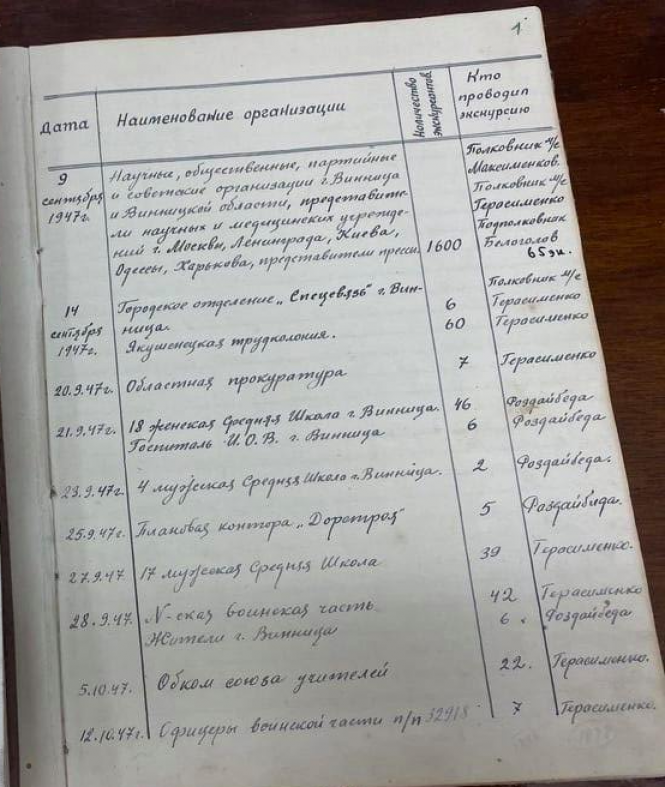 1
Дата
Наименование организации
Количество экскурсантов.
Кто
проводил
экскурсию
9
сентября
1947г.
Научные, общественные, партийные
и советские организации г. Винница
и Винницкой области, представите-
ли научных и медицинских учрежде-
ний г. Москвы, Ленинграда, Киева,
Одессы, Харькова, представители прессы.
1600
Полковник м/с
Максименков.
Полковник м/с
Герасименко
Подполковник
Белоголов
65 эк.
14
сентября
1947г.
Городское отделение „Спецсвязь" г. Вин-
ница.
Якушенецкая трудколония.
6
60
Полковник м/с
Герасименко
Герасименко
20.9.47г. Областная прокуратура 7 Герасименко
21.9.47г. 18 женская Средняя Школа г. Винница. 46 Роздайбеда
Госпиталь И.О.В. г. Винница 6 Роздайбеда
23.9.47г. 4 мужская Средняя Школа г. Винница. 2 Роздайбеда.
25.9.47г. Плановая контора „Дорстроя" 5 Роздайбида.
27.9.47 17 мужская Средняя Школа 39 Герасименко.
28.9.47. N-ская воинская часть 42 Герасименко
Жители г. Винница 6. Роздайбеда
5.10.47. Обком союза учителей 22. Герасименко.
12.10.47г. Офицеры воинской части п/п 32918 7 Герасименко.